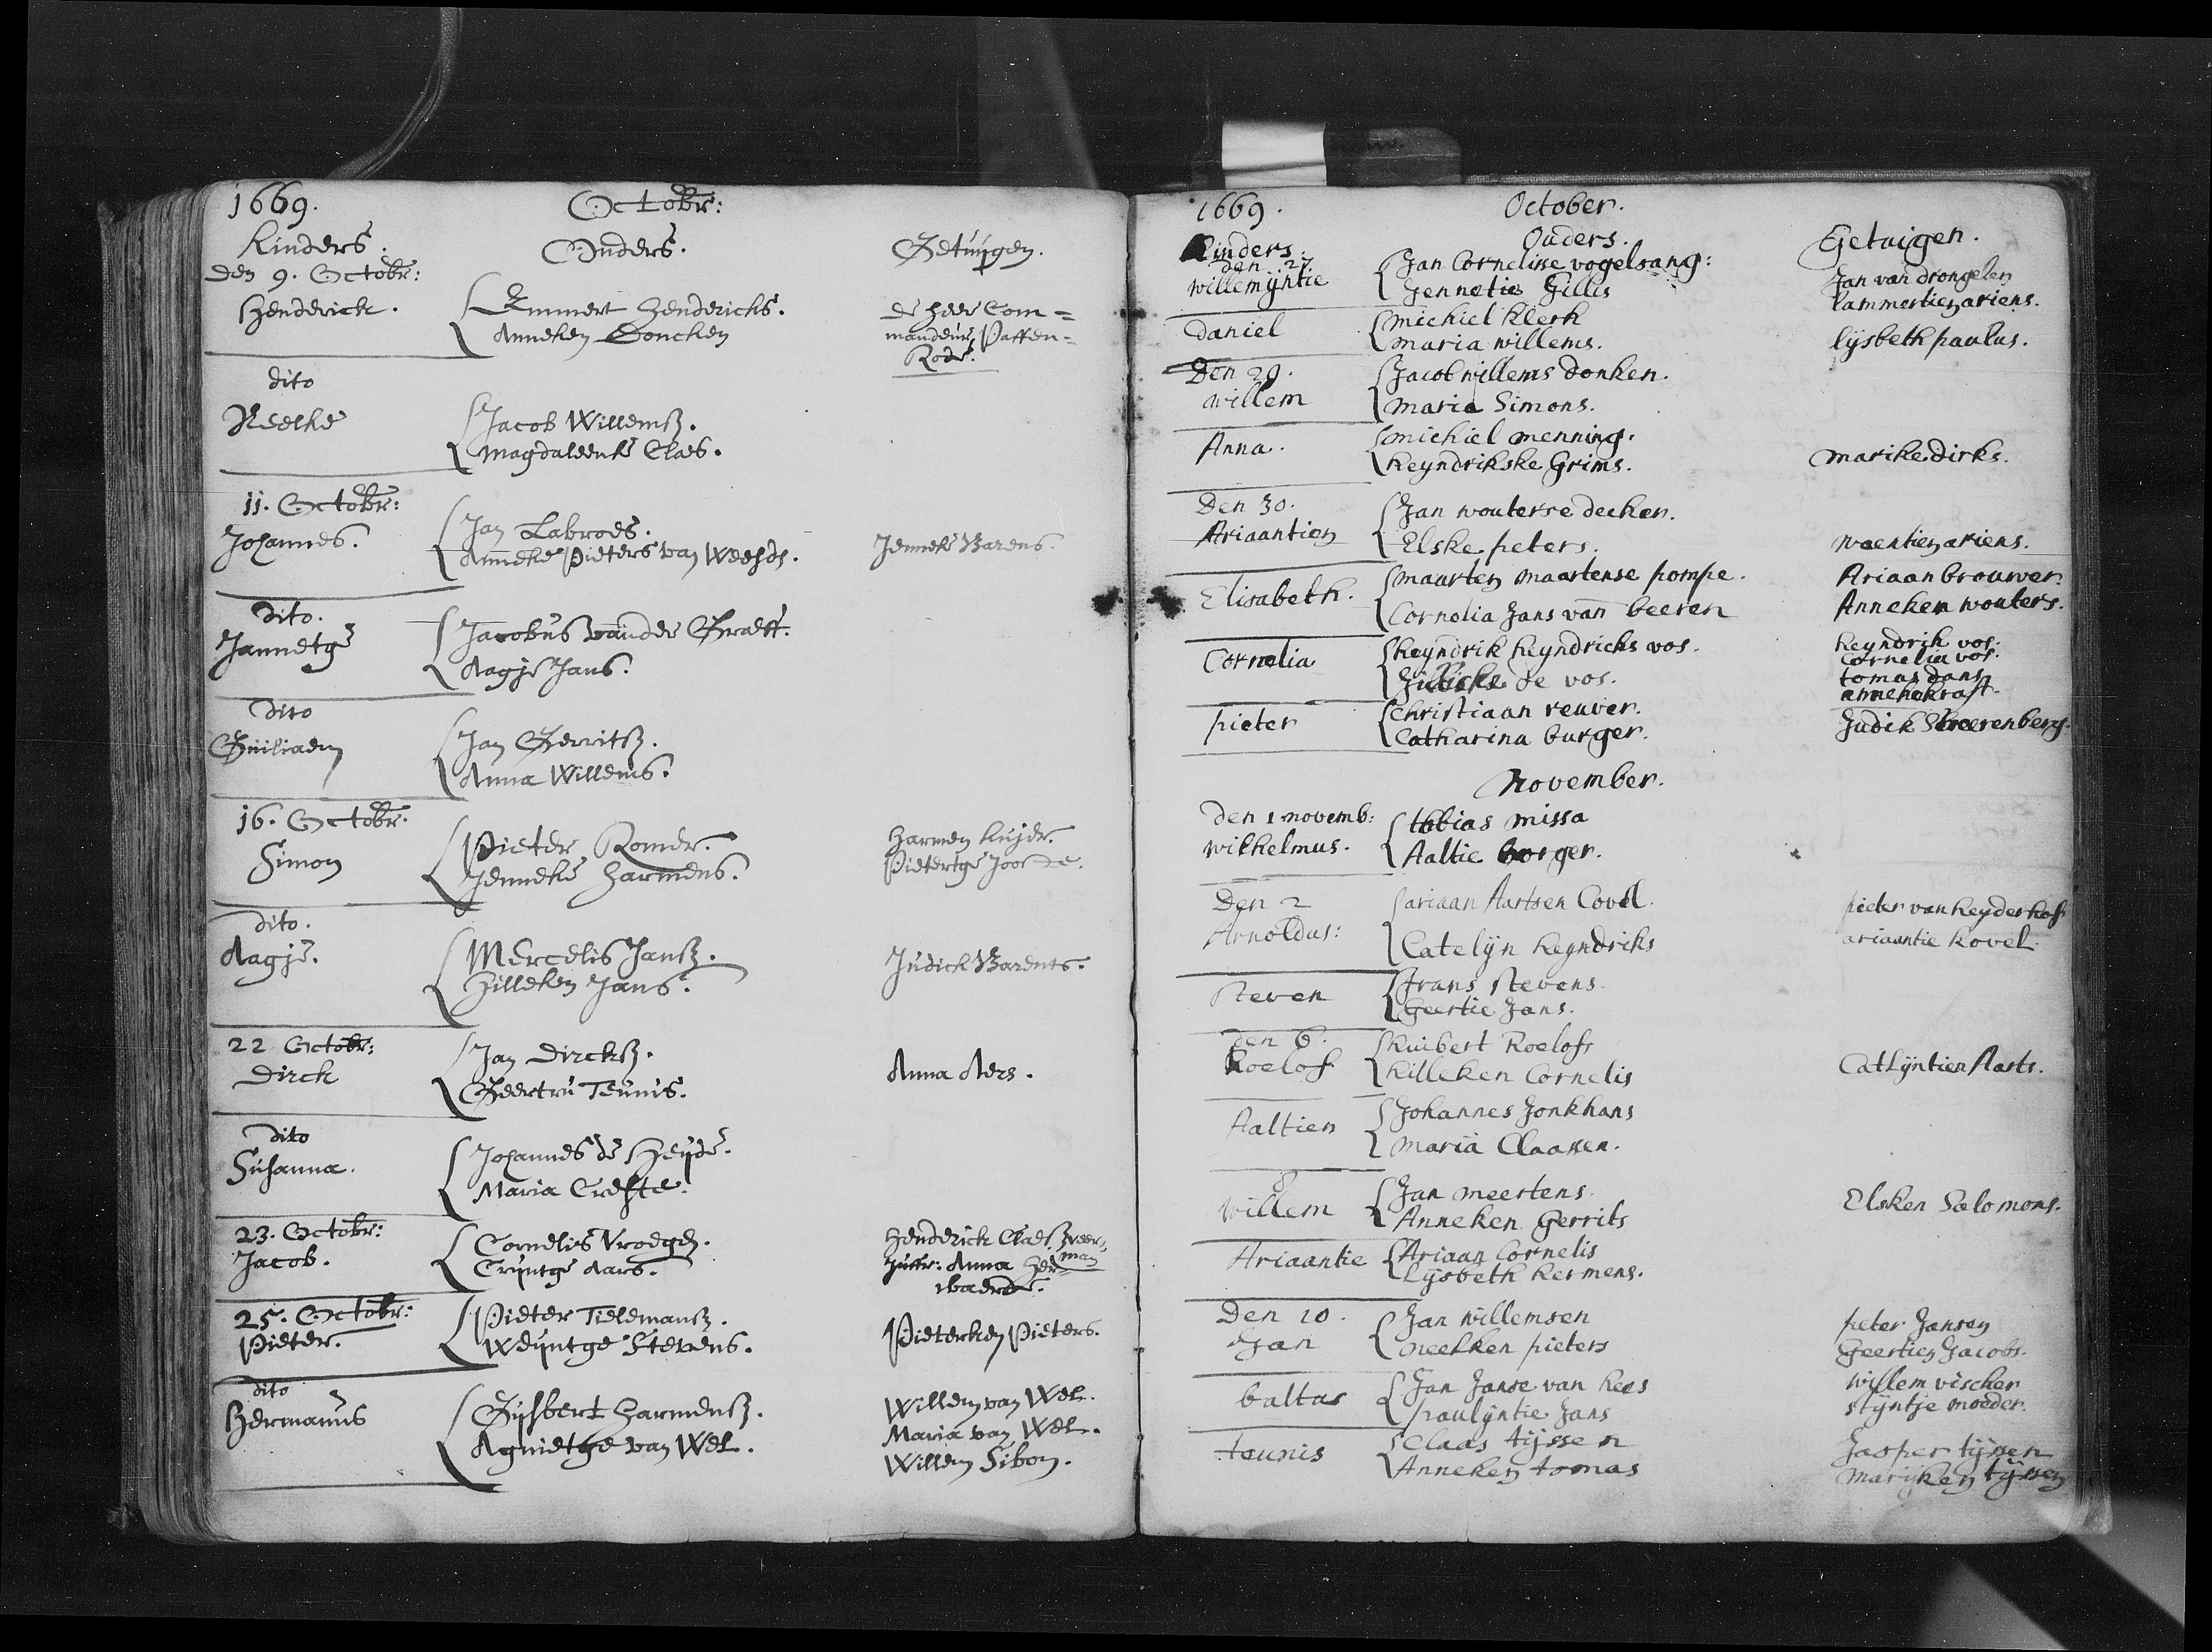 1669.
Octobr:
Kinders.
Ouders.
Getuijgen.
den 9. Octobr:
Henderick.
Emmert Henderichs.
Anneken Doncken
de Heer Com=
mandeur Paffen=
Rode.
dito
Neelke
Jacob Willemsz.
Magdaleenke Claes.
11. Octobr:
Johannes.
Jan Labroes.
Anneke Pieters van
Jenneke Barens.
dito.
Jannetge
Jacobus vander Graeff.
Aagje Jans.
dito
Guiliaem
Jan Gerritsz.
Anna Willems.
16. Octobr.
Simon
Pieter Romer.
Jenneke Harmens.
Harmen Kuijer.
Pietertge
dito.
Aagje.
Mercelis Jansz.
Hilleken Jans.
Judick Barents.
22 Octobr:
Dirck
Jan Dircksz.
Geertru Teunis.
Anna Aers.
dito
Susanna.
Johannes de Heijde.
Maria
23. Octobr:
Jacob.
Cornelis
Trijntge Aars.
Henderick Claesz veer=
man
Juffr: Anna Her=
waerde.
25. Octobr:
Pieter.
Pieter Tielemansz.
Weijntge Stevens.
Pieterken Pieters.
dito
Hermanus
Gijsbert Harmensz.
Agnietge van Wel.
Willem van Wel.
Maria van Wel.
Willem Sibon.
1669.
October.
Kinders.
Ouders.
Getuigen.
den 27
willemijntie
Jan Cornelisse vogelsang:
Jennetie Gillis
Jan van drongelen
lammertien ariens.
Daniel
michiel klerk
maria willems.
lijsbeth paulus.
Den 29.
willem
Jacob willems donken.
Maria Simons.
Anna.
michiel menning.
heyndrikske Grims.
Marike dirks.
Den 30.
Ariaantien
Jan wouterse decker.
Elske peters.
ariens.
Elisabeth.
maarten maartense pompe.
Cornelia Jans van beeren
Ariaan brouwer
Anneken wouters.
Cornelia
heyndrik heyndricks vos.
de vos.
heyndrik vos.
Cornelia vos.
tomas
pieter
Christiaan reuver.
Catharina burger.
Judik
November.
den 1 novemb:
wilhelmus.
tobias missa
Aaltie borger.
Den 2
Arnoldus:
ariaan Aartsen Covel.
Catelijn heyndriks
pieter van heyderhof
ariaantie kovel.
Steven
frans stevens.
Geertie Jans.
den 6.
Roelof
huibert Roelofs
hilleken Cornelis
Catlijntien Aarts.
Aaltien
Johannes Jonkhans
Maria Claassen.
8
willem
Jan meertens.
Anneken Gerrits
Elsken Salomons.
Ariaantie
Ariaan Cornelis
Lijsbeth hermens.
Den 10.
Jan
Jan willemsen
neelken pieters
peter Jansen
Geertien Jacobs.
baltus
Jan Janse van hees
paulijntie Jans
willem vischer
stijntje moeder.
teunis
Claas tijssen
Anneken tomas
Jasper tijssen
marijken tijssen